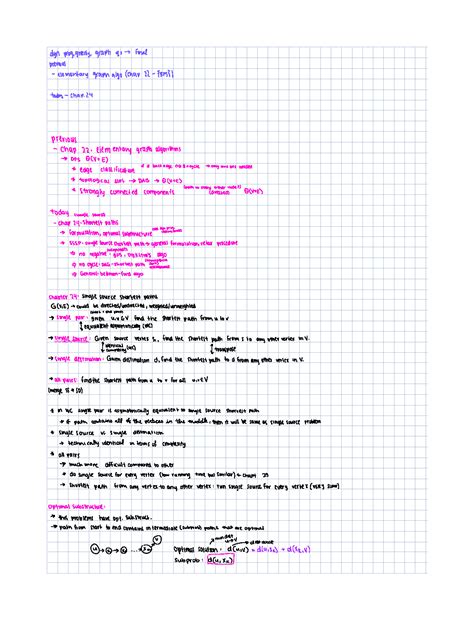 dyn prog, greedy, graph qs → final
previous
- elementary graph algo (chap 22 -
today - chap 24
previous
- chap 22: Elementary graph algorithms
→ DFS θ(V+E)
* edge classification
* topological sort → DAG → θ(V+E)
* strongly connected components
today
- chap 24: shortest paths
→ formulation, optimal substructure
→ SSSP: single source shortest path → general formulation, relax procedure
→ no negative: BFS, Dijkstra's algo
→ no cycle: DAG-shortest path
→ General: bellman-ford algo
Chapter 24: single source shortest paths
G(V,E) → could be directed/undirected, weighted/unweighted
→ single pair: given u,v ∈ V find the shortest path from u to v
equivalent asymptotically (WC)
→ single source: Given source vertex s, find the shortest path from s to any other vertex in V.
transpose
→ single destination: Given destination d, find the shortest path to d from any other vertex in V.
→ all pairs: find the shortest path from u to v for all u,v ∈ V
* in WC single pair is asymptotically equivalent to single source shortest path
* if path contains all of the vertices in the middle, then it will be same as single source problem
* single source vs single destination
→ technically identical in terms of complexity
* all pairs
→ much more difficult compared to other
→ do single source for every vertex (but running time not similar) → chapt 25
→ shortest path from any vertex to any other vertex: run single source for every vertex (very slow)
Optimal Substructure:
→ this problems have opt. substruct.
→ path from start to end contains intermediate (subprob) paths that are optimal
Optimal solution: d(u,v) = d(u,x₂) + d(x₂,v)
distance
subprob: d(u,x₂)